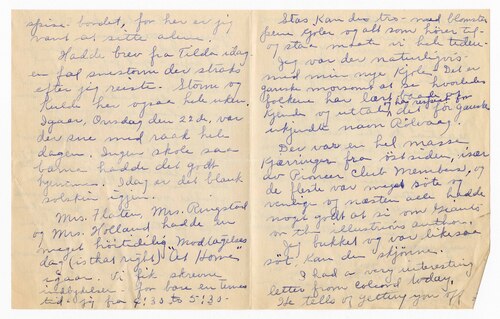 spise-bordet, for her er jeg
vant at sitte alene.
Hadde brev fra Tilda idag
en fæl snestorm der straks
efter jeg reiste. Storm og
kulde her ogsaa hele uken.
Igaar, Onsdag den 22de, var
der sne med raak hele
dagen. Ingen skole saa
barna hadde det godt
hjemme. Idag er det blank
solskin igjen.
Mrs. Flaten, Mrs. Ringstad
og Mrs. Holland hadde en
meget höitidelig Modtagelses
dag (is that right) "At Home"
igaar. Vi fik skrevne
indbydelser - for bare en times
tid - jeg fra 4:30 to 5:30.
Stas kan du tro - med blomster
pene kjoler og alt som hörer til
og staa maate vi hele tiden.
Jeg var der naturligvis
med min nye kjole. Det er
ganske morsomt at se hvorledes
folkene har lært at
kjende og uttale det for ganske
ukjendte navn Rölvaag.
har respect for
Der var en hel masse
kjærringer fra östsiden, især
av Pioneer Club Members, og
de fleste var meget söte og
venlige og næsten alle hadde
noget godt at si om Giants
or the illustrious author.
Jeg bukket og var likesaa
söt. Kan du skjönne.
I had a very interesting
letter from today.
He tells of getting you off